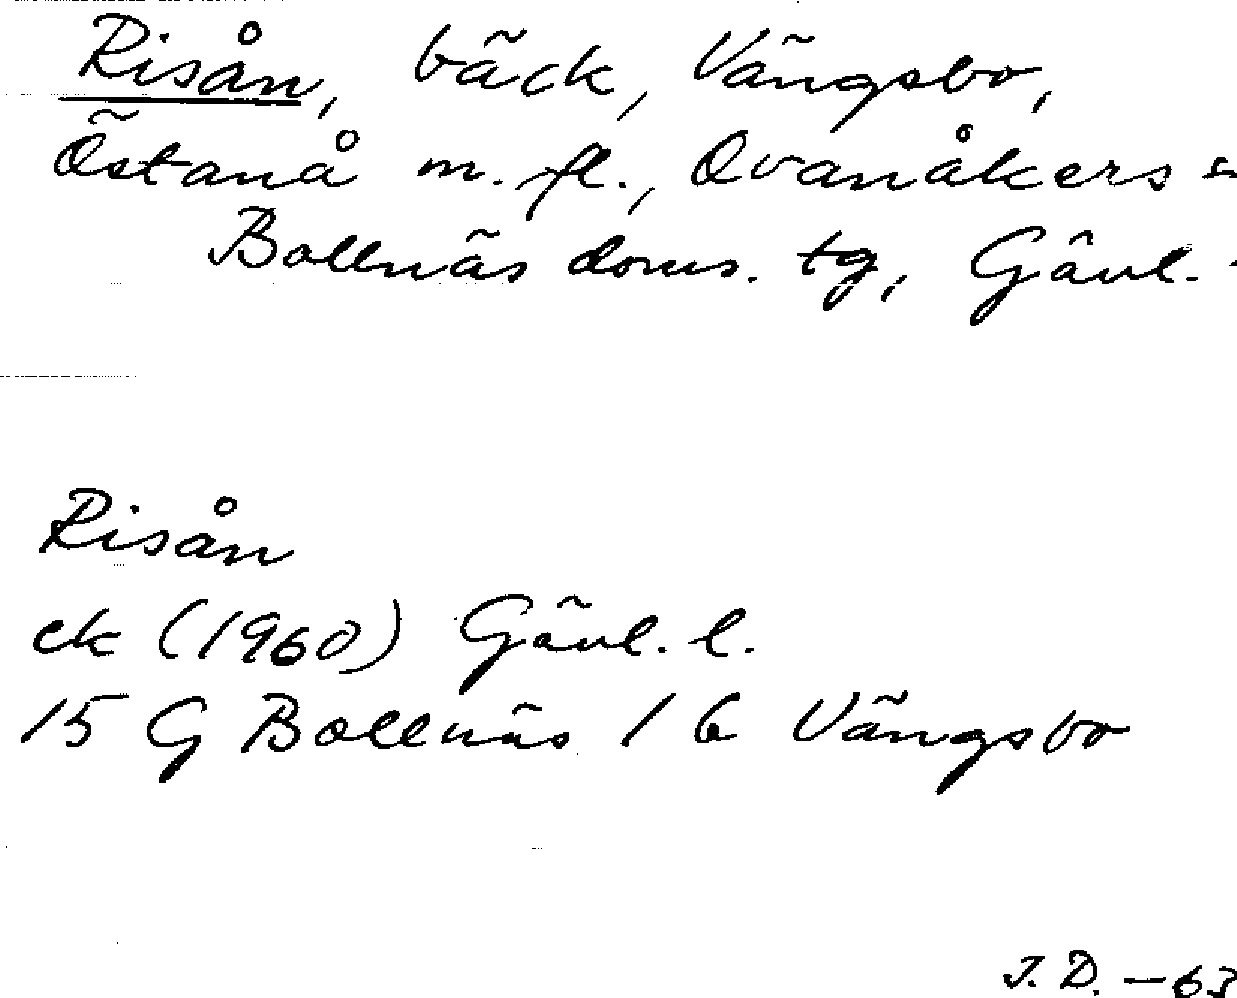 Risån, bäck, Vängsbo,
Östanå m. fl., Ovanåkers s
Bollnäs doms. tg, Gävl.
Risån
ek (1960) Gävl. l.
15 G Bollnäs 1 b Vängsbo
J. D. – 63